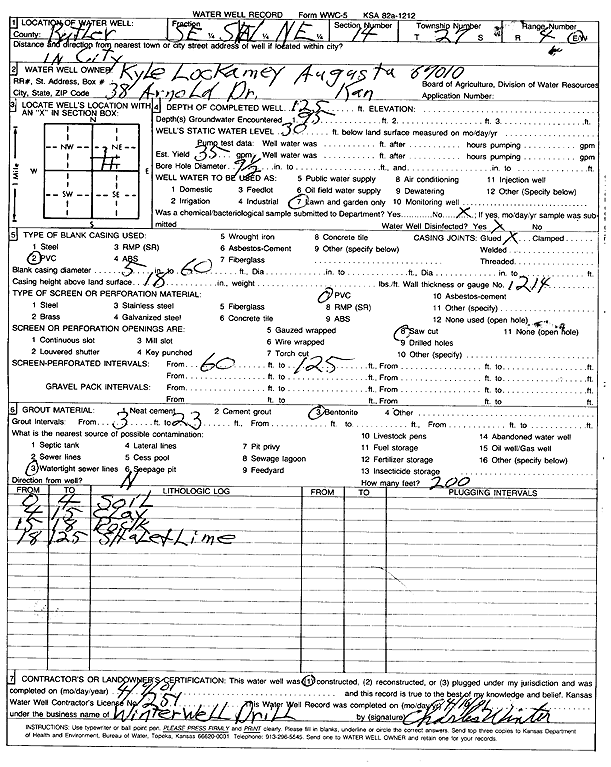 WATER WELL RECORD Form WWC-5 KSA 82a-1212
1 LOCATION OF WATER WELL: Fraction Section Number Township Number Range Number
County: Butler SE ¼ SW ¼ NE ¼ 14 T 27 S R 4 E/W
Distance and direction from nearest town or city street address of well if located within city?
IN City
2 WATER WELL OWNER: Kyle Lockamey Augusta 67010
RR#, St. Address, Box # 38 Arnold Dr. Kan Board of Agriculture, Division of Water Resources
City, State, ZIP Code Application Number:
3 LOCATE WELL'S LOCATION WITH AN "X" IN SECTION BOX:
N
NW NE
W E
SW SE
S
1 Mile
4 DEPTH OF COMPLETED WELL 125 ft. ELEVATION:
Depth(s) Groundwater Encountered 1 95 ft. 2 ft. 3 ft.
WELL'S STATIC WATER LEVEL 30 ft. below land surface measured on mo/day/yr
Pump test data: Well water was ft. after hours pumping gpm
Est. Yield 35 gpm: Well water was ft. after hours pumping gpm
Bore Hole Diameter 9½ in. to ft., and in. to ft.
WELL WATER TO BE USED AS: 5 Public water supply 8 Air conditioning 11 Injection well
1 Domestic 3 Feedlot 6 Oil field water supply 9 Dewatering 12 Other (Specify below)
2 Irrigation 4 Industrial 7 Lawn and garden only 10 Monitoring well
Was a chemical/bacteriological sample submitted to Department? Yes No X ; If yes, mo/day/yr sample was submitted
Water Well Disinfected? Yes X No
5 TYPE OF BLANK CASING USED: 5 Wrought iron 8 Concrete tile CASING JOINTS: Glued X Clamped
1 Steel 3 RMP (SR) 6 Asbestos-Cement 9 Other (specify below) Welded
2 PVC 4 ABS 7 Fiberglass Threaded
Blank casing diameter 5 in. to 60 ft., Dia in. to ft., Dia in. to ft.
Casing height above land surface 18 in., weight lbs./ft. Wall thickness or gauge No. 1214
TYPE OF SCREEN OR PERFORATION MATERIAL: 7 PVC 10 Asbestos-cement
1 Steel 3 Stainless steel 5 Fiberglass 8 RMP (SR) 11 Other (specify)
2 Brass 4 Galvanized steel 6 Concrete tile 9 ABS 12 None used (open hole)
SCREEN OR PERFORATION OPENINGS ARE: 5 Gauzed wrapped 8 Saw cut 11 None (open hole)
1 Continuous slot 3 Mill slot 6 Wire wrapped 9 Drilled holes
2 Louvered shutter 4 Key punched 7 Torch cut 10 Other (specify)
SCREEN-PERFORATED INTERVALS: From 60 ft. to 125 ft., From ft. to ft.
From ft. to ft., From ft. to ft.
GRAVEL PACK INTERVALS: From ft. to ft., From ft. to ft.
From ft. to ft., From ft. to ft.
6 GROUT MATERIAL: 1 Neat cement 2 Cement grout 3 Bentonite 4 Other
Grout Intervals: From 3 ft. to 23 ft., From ft. to ft., From ft. to ft.
What is the nearest source of possible contamination: 10 Livestock pens 14 Abandoned water well
1 Septic tank 4 Lateral lines 7 Pit privy 11 Fuel storage 15 Oil well/Gas well
2 Sewer lines 5 Cess pool 8 Sewage lagoon 12 Fertilizer storage 16 Other (specify below)
3 Watertight sewer lines 6 Seepage pit 9 Feedyard 13 Insecticide storage
Direction from well? N How many feet? 200
FROM TO LITHOLOGIC LOG FROM TO PLUGGING INTERVALS
0 4 Soil
4 15 Clay
15 18 Rock
18 125 Shale+Lime
7 CONTRACTOR'S OR LANDOWNER'S CERTIFICATION: This water well was (1) constructed, (2) reconstructed, or (3) plugged under my jurisdiction and was
completed on (mo/day/year) and this record is true to the best of my knowledge and belief. Kansas
Water Well Contractor's License No. 251 This Water Well Record was completed on (mo/day/yr)
under the business name of Winter Well Drill by (signature) Charles Winter
INSTRUCTIONS: Use typewriter or ball point pen. PLEASE PRESS FIRMLY and PRINT clearly. Please fill in blanks, underline or circle the correct answers. Send top three copies to Kansas Department
of Health and Environment, Bureau of Water, Topeka, Kansas 66620-0001. Telephone: 913-296-5545. Send one to WATER WELL OWNER and retain one for your records.